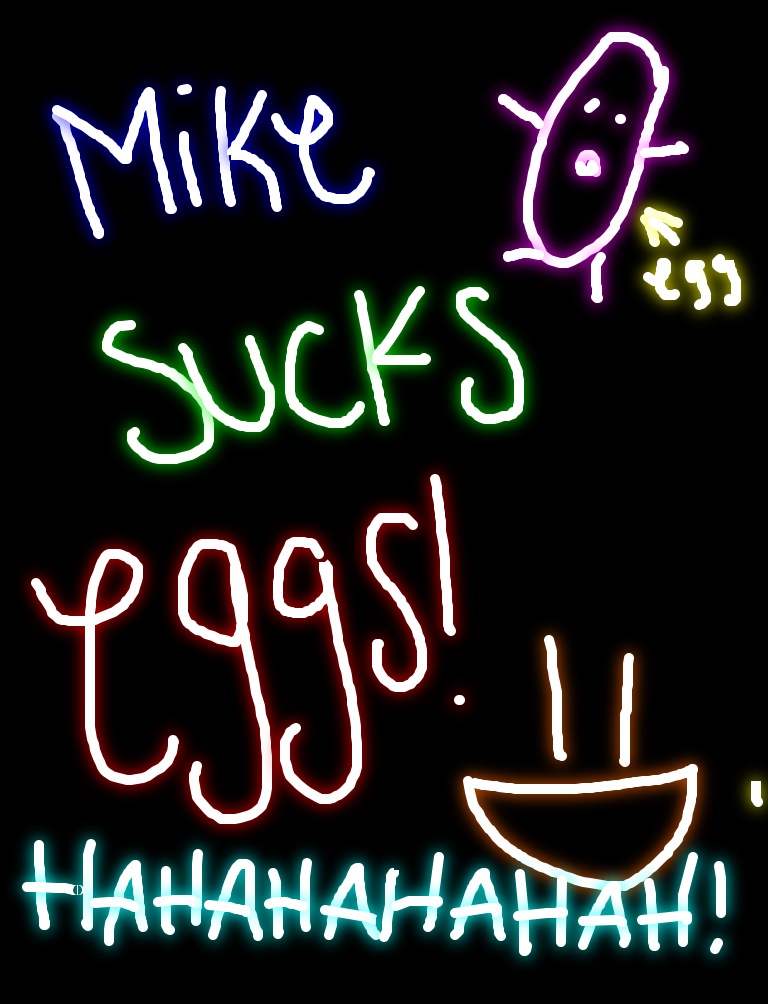 Mike
egg
sucks
eggs!
HAHAHAHAHAH!